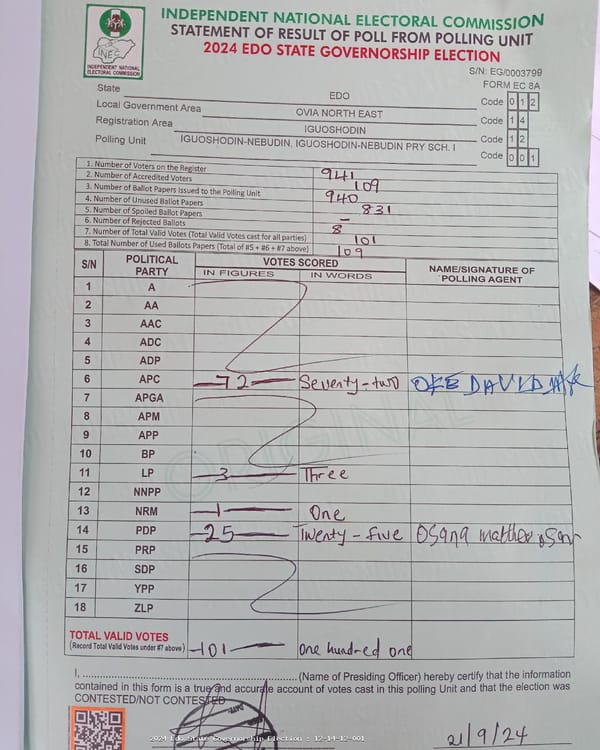 INDEPENDENT NATIONAL ELECTORAL COMMISSION
STATEMENT OF RESULT OF POLL FROM POLLING UNIT
2024 EDO STATE GOVERNORSHIP ELECTION
INEC
INDEPENDENT NATIONAL
ELECTORAL COMMISSION
S/N: EG/0003799
FORM EC 8A
State EDO Code 0 1 2
Local Government Area OVIA NORTH EAST Code 1 4
Registration Area IGUOSHODIN Code 1 2
Polling Unit IGUOSHODIN-NEBUDIN, IGUOSHODIN-NEBUDIN PRY SCH. I Code 0 0 1
1. Number of Voters on the Register 941
2. Number of Accredited Voters 109
3. Number of Ballot Papers Issued to the Polling Unit 940
4. Number of Unused Ballot Papers 831
5. Number of Spoiled Ballot Papers –
6. Number of Rejected Ballots 8
7. Number of Total Valid Votes (Total Valid Votes cast for all parties) 101
8. Total Number of Used Ballots Papers (Total of #5 + #6 + #7 above) 109
S/N POLITICAL PARTY VOTES SCORED NAME/SIGNATURE OF POLLING AGENT
IN FIGURES IN WORDS
1 A
2 AA
3 AAC
4 ADC
5 ADP
6 APC 72 Seventy-two OKE DAVID
7 APGA
8 APM
9 APP
10 BP
11 LP 3 Three
12 NNPP
13 NRM 1 One
14 PDP 25 Twenty-five Osana matthew
15 PRP
16 SDP
17 YPP
18 ZLP
ORIGINAL
TOTAL VALID VOTES 101 One hundred one
(Record Total Valid Votes under #7 above)
I, ................................................(Name of Presiding Officer) hereby certify that the information
contained in this form is a true and accurate account of votes cast in this polling Unit and that the election was
CONTESTED/NOT CONTESTED
2024 Edo State Governorship Election : 12-14-12-001
21/9/24